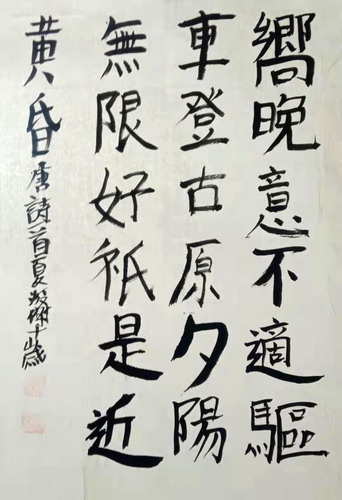 嚮晚意不適驅
車登古原夕陽
無限好祇是近
黄昏唐詩首夏